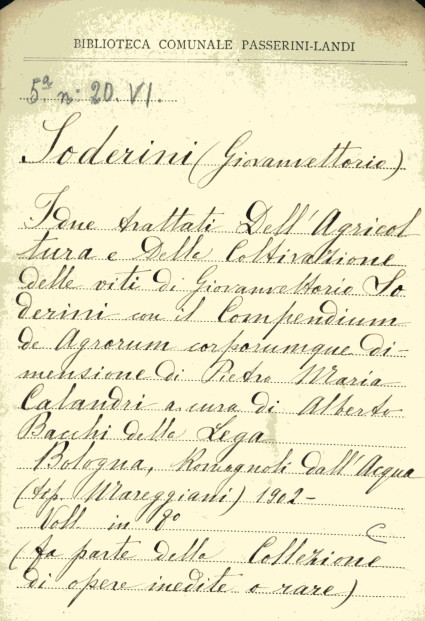 BIBLIOTECA COMUNALE PASSERINI-LANDI
5ª n. 20. VI.
Soderini (Giovanvettorio)
I due trattati Dell'Agricol
tura e Della Coltivazione
delle viti di Giovanvettorio So
derini con il Compendium
de Agrorum corporumque di-
mensione di Pietro Maria
Calandri a cura di Alberto
Bacchi della Lega
Bologna, Romagnoli dall'Acqua
(tip. Mareggiani) 1902-
Voll. in 8º C
(fa parte della Collezione
di opere inedite o rare)